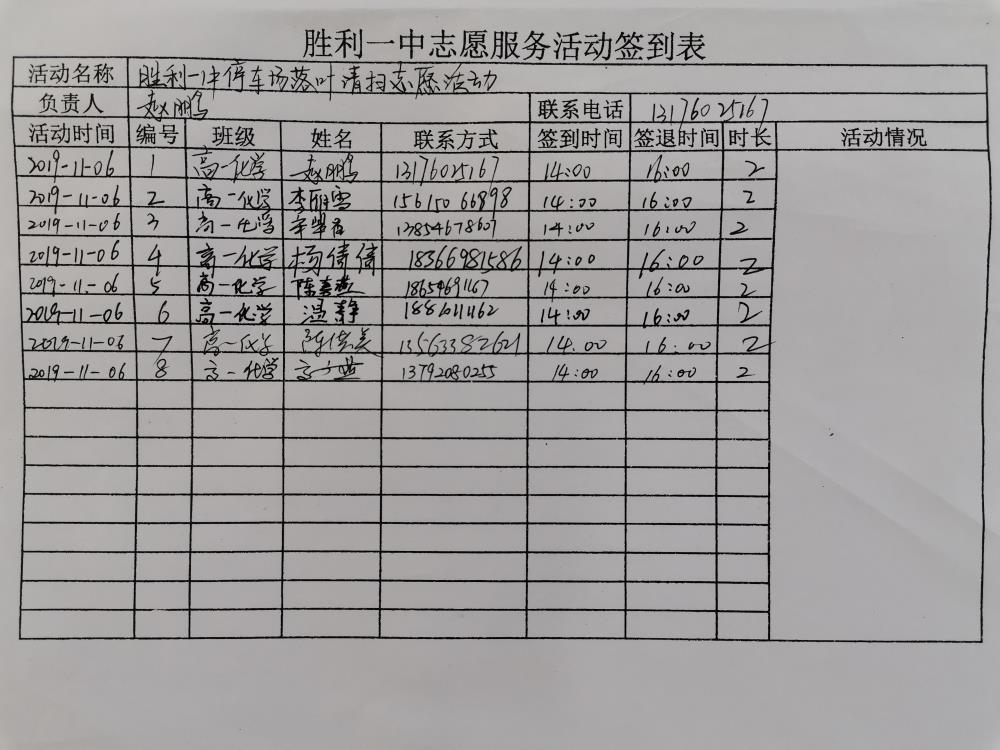 胜利一中志愿服务活动签到表
活动名称 胜利一中停车场落叶清扫志愿活动
负责人 赵鹏 联系电话 13176025167
活动时间 编号 班级 姓名 联系方式 签到时间 签退时间 时长 活动情况
2019-11-06 1 高一化学 赵鹏 13176025167 14:00 16:00 2
2019-11-06 2 高一化学 李丽雪 15615066898 14:00 16:00 2
2019-11-06 3 高一化学 13854678607 14:00 16:00 2
2019-11-06 4 高一化学 杨倩倩 18366981586 14:00 16:00 2
2019-11-06 5 高一化学 陈喜燕 18654691167 14:00 16:00 2
2019-11-06 6 高一化学 温静 14:00 16:00 2
2019-11-06 7 高一化学 13563382621 14:00 16:00 2
2019-11-06 8 高一化学 13792080255 14:00 16:00 2